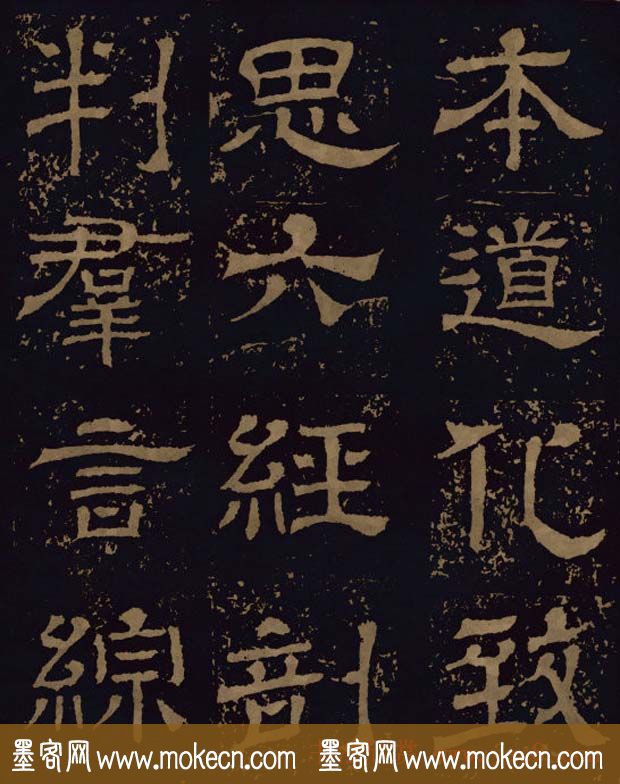 本道化致
思六經剖
判群言綜
墨客网 www.mokecn.com 墨客网 www.mokecn.com